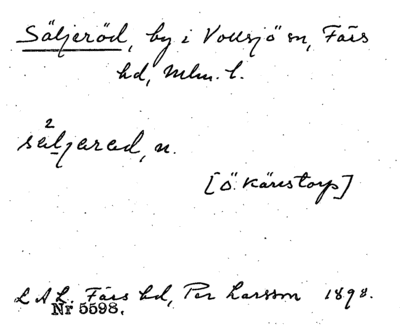 Säljeröd, by i Vollsjö sn, Färs
hd, Mlm. l.
2
säljarad, n.
[Ö. Kärstorp]
L A L. Färs hd, Per Larsson 1898.
Nr 5598.